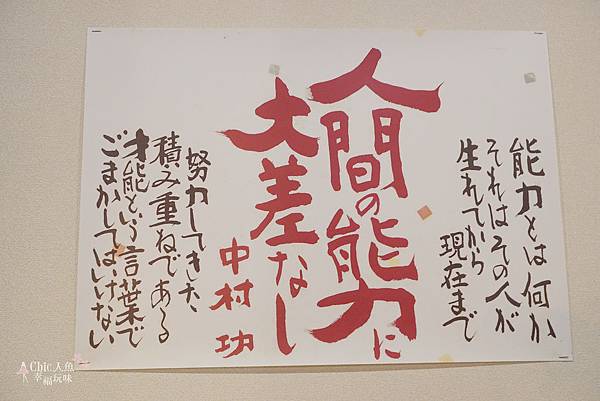 能力とは何か
それはその人が
生れてから
現在まで
人間の能力に
大差なし
中村功
努力してきた、
積み重ねである
才能という言葉で
ごまかしてはいけない
Chic人魚
幸福玩味